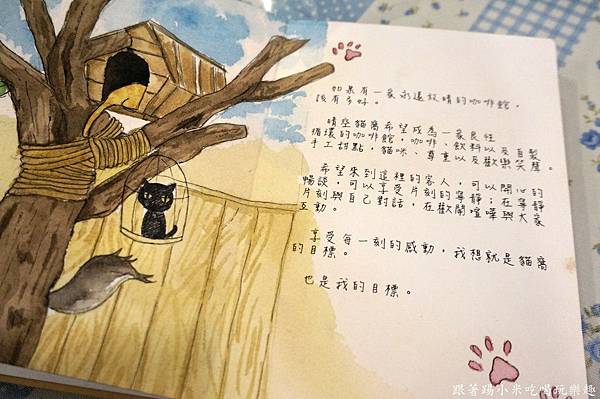 如果有一家永遠放晴的咖啡館，
該有多好。
晴座貓窩希望成為一家良性
循環的咖啡館，咖啡、飲料以及自製
手工甜點，貓咪、尊重以及歡樂笑聲。
希望來到這裡的客人，可以開心的
暢談，可以享受片刻的寧靜；在寧靜
片刻與自己對話，在歡鬧喧嘩與大家
互動。
享受每一刻的感動，我想就是貓窩
的目標。
也是我的目標。
跟著踢小米吃喝玩樂趣